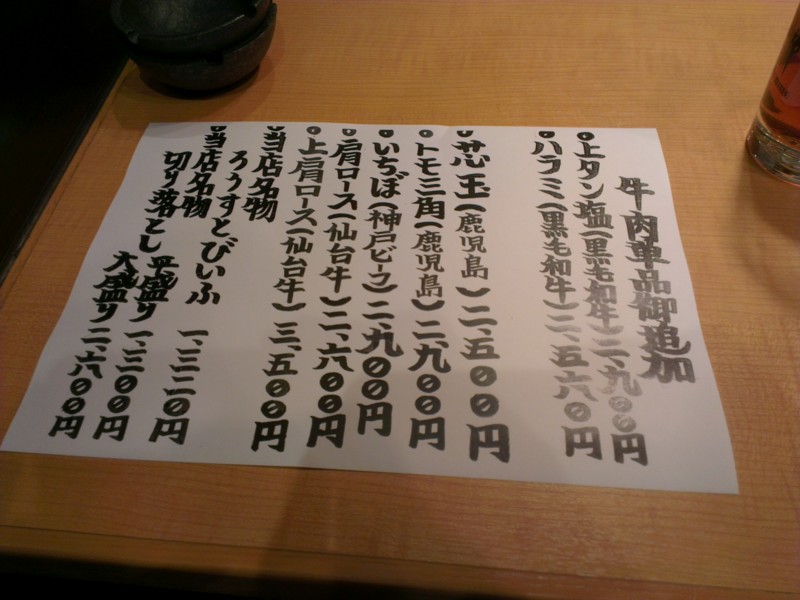 牛肉単品御追加
上タン塩(黒毛和牛)二、九〇〇円
ハラミ(黒毛和牛)二、五六〇円
芯玉(鹿児島)二、五〇〇円
トモ三角(鹿児島)二、九〇〇円
いちぼ(神戸ビーフ)二、九〇〇円
肩ロース(仙台牛)二、六〇〇円
上肩ロース(仙台牛)三、五〇〇円
当店名物
ろうすとびいふ 一、三二〇円
当店名物
切り落とし 平盛り 一、三〇〇円
大盛り 二、六〇〇円